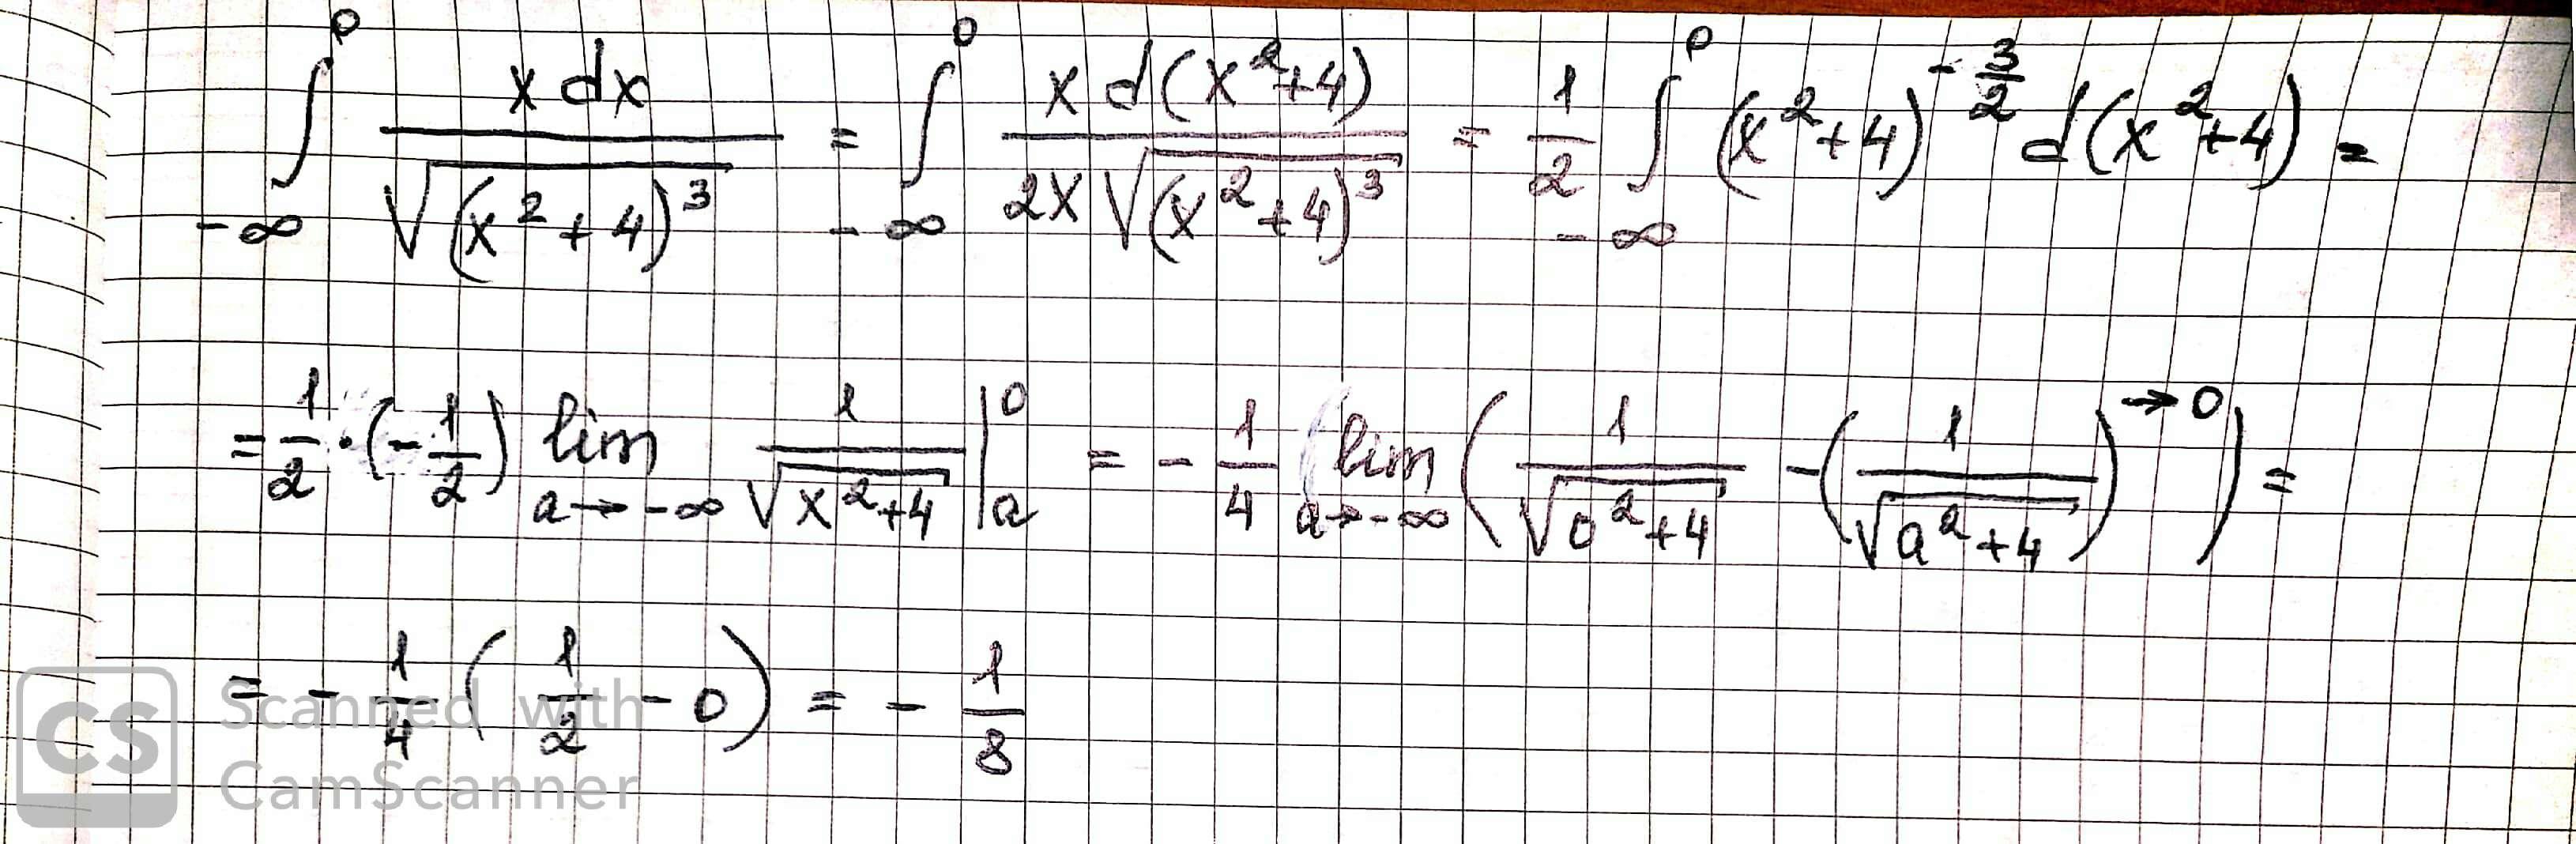 ∫_{-∞}^{0} x dx / √((x²+4)³) = ∫_{-∞}^{0} x d(x²+4) / (2x√((x²+4)³)) = 1/2 ∫_{-∞}^{0} (x²+4)^{-3/2} d(x²+4) =
= 1/2 · (-1/2) lim_{a→-∞} 1/√(x²+4) |_{a}^{0} = - 1/4 lim_{a→-∞} (1/√(0²+4) - (1/√(a²+4))^{→0}) =
= - 1/4 (1/2 - 0) = - 1/8
CS Scanned with
CamScanner